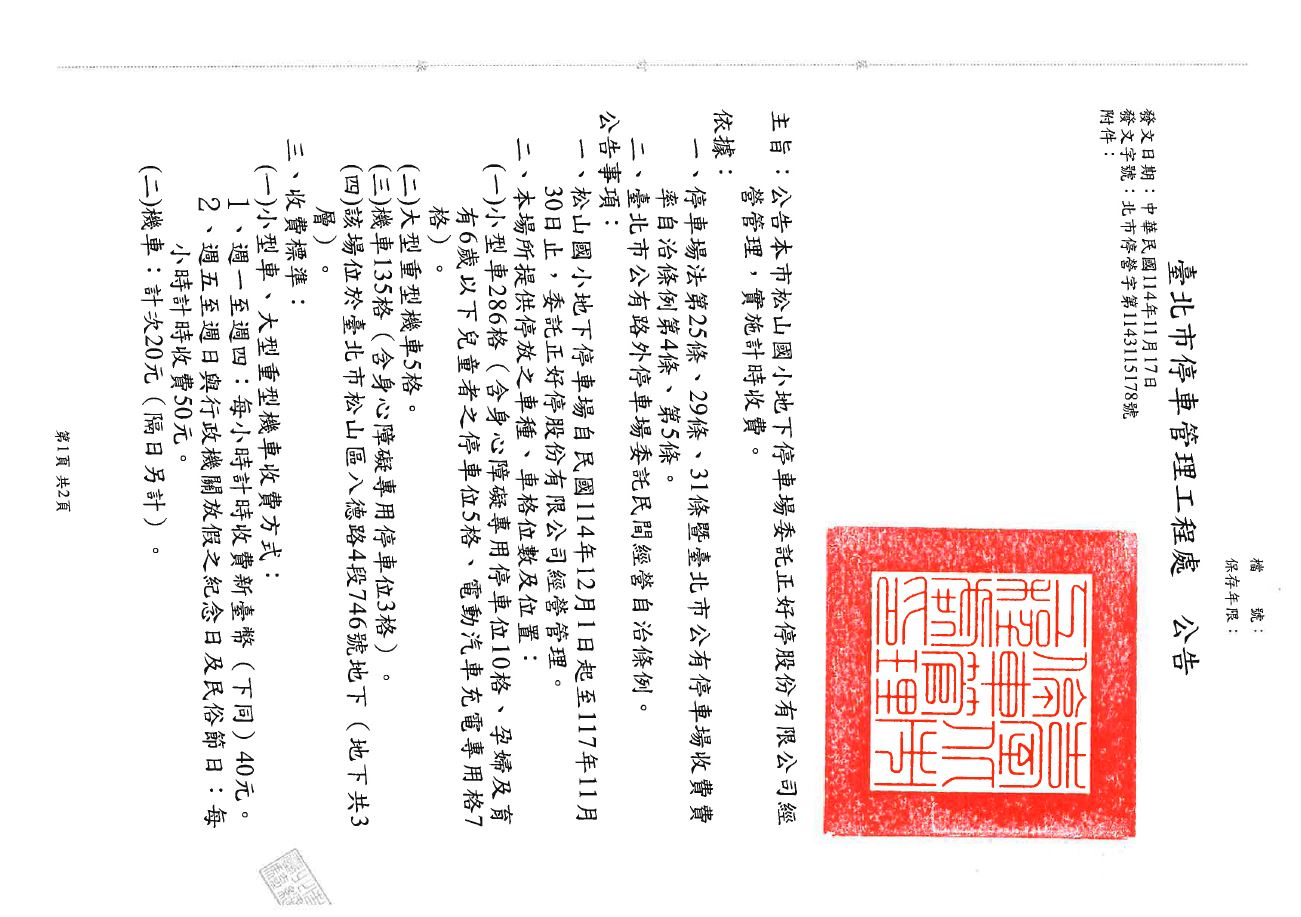 檔　　號：
保存年限：
臺北市停車管理工程處　公告
發文日期：中華民國114年11月17日
發文字號：北市停營字第1143115178號
附件：
主旨：公告本市松山國小地下停車場委託正好停股份有限公司經
營管理，實施計時收費。
依據：
一、停車場法第25條、29條、31條暨臺北市公有停車場收費費
率自治條例第4條、第5條。
二、臺北市公有路外停車場委託民間經營自治條例。
公告事項：
一、松山國小地下停車場自民國114年12月1日起至117年11月
30日止，委託正好停股份有限公司經營管理。
二、本場所提供停放之車種、車格位數及位置：
(一)小型車286格（含身心障礙專用停車位10格、孕婦及育
有6歲以下兒童者之停車位5格、電動汽車充電專用格7
格）。
(二)大型重型機車5格。
(三)機車135格（含身心障礙專用停車位3格）。
(四)該場位於臺北市松山區八德路4段746號地下（地下共3
層）。
三、收費標準：
(一)小型車、大型重型機車收費方式：
1、週一至週四：每小時計時收費新臺幣（下同）40元。
2、週五至週日與行政機關放假之紀念日及民俗節日：每
小時計時收費50元。
(二)機車：計次20元（隔日另計）。
第1頁 共2頁
裝
訂
線